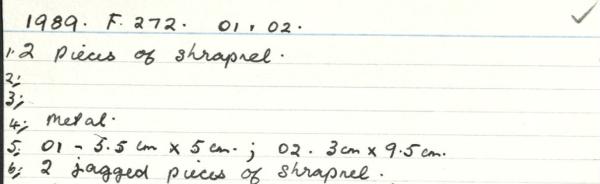 1989. F. 272. 01, 02.
1. 2 pieces of shrapnel.
2;
3;
4; metal.
5. 01 - 3.5 cm x 5 cm. ; 02. 3cm x 9.5 cm.
6; 2 jagged pieces of shrapnel.